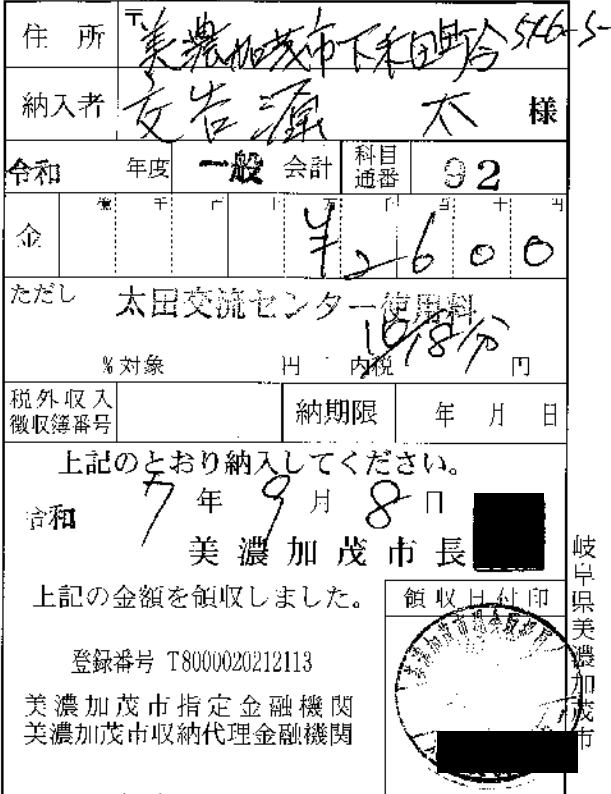 住所 〒 美濃加茂市下米田町 516-5-
納入者 太 様
令和 年度 一般 会計 科目通番 92
億 千 百 十 万 千 百 十 円
金 ¥2600
ただし 太田交流センター使用料
10/18分
%対象 円 内税 円
税外収入徴収簿番号 納期限 年 月 日
上記のとおり納入してください。
令和 7年 9月 8日
美濃加茂市長
上記の金額を領収しました。
領収日付印
登録番号 T8000020212113
美濃加茂市指定金融機関
美濃加茂市収納代理金融機関
岐阜県美濃加茂市